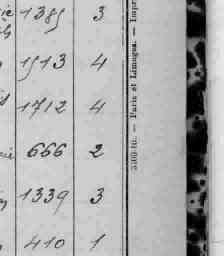 1385 3
1513 4
1712 4
666 2
1339 3
410 1
Paris et Limoges. — Impr